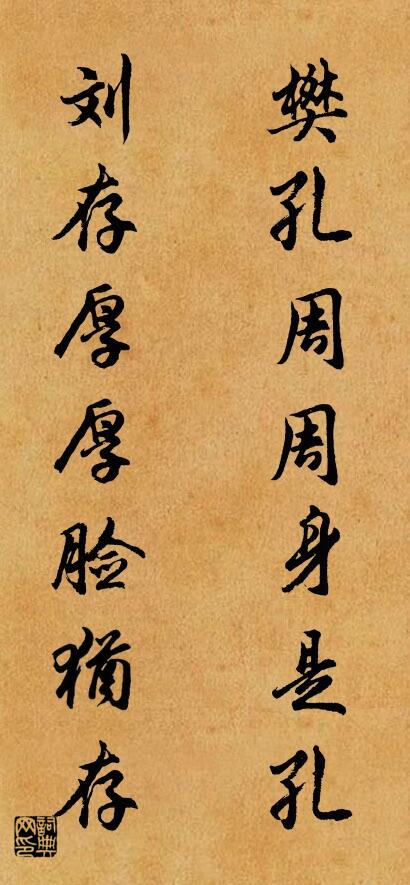 樊孔周周身是孔
刘存厚厚脸犹存
詞典网印